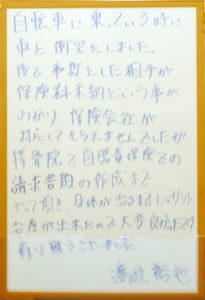 自転車に乗っている時に
車と衝突しました。
後で事故をした相手が
保険料未納という事が
わかり 保険会社が
対応してもらえませんでしたが
接骨院で自賠責保険での
請求書類の作成まで
やって頂き、身体が治るまでしっかりと
治療が出来たので大変良かったです
有り難うございました
渡辺